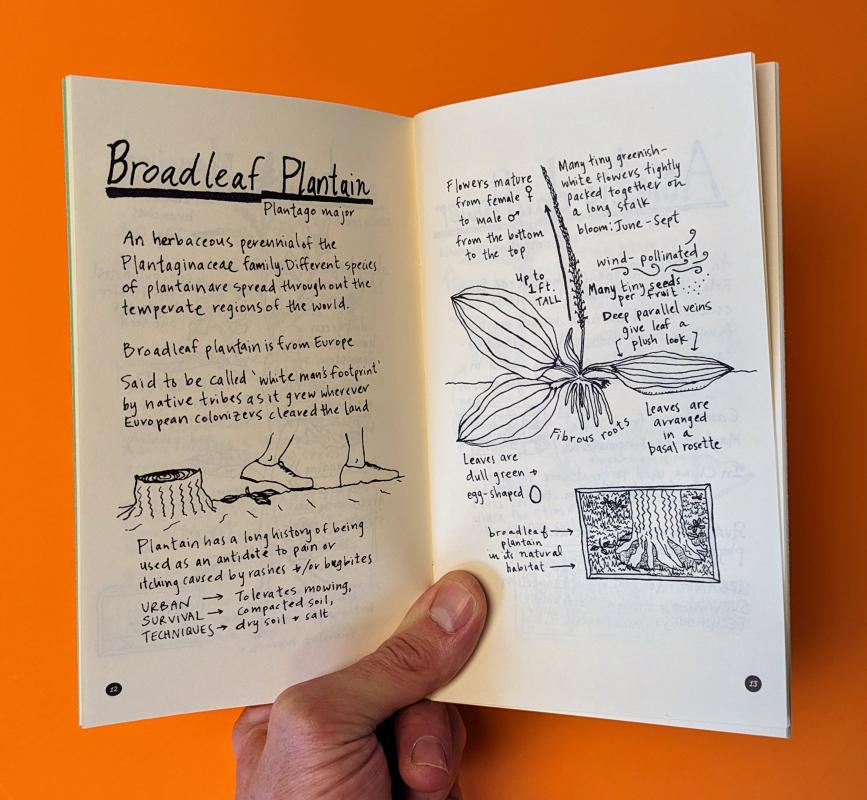 Broadleaf Plantain
Plantago major
An herbaceous perennial of the
Plantaginaceae family. Different species
of plantain are spread throughout the
temperate regions of the world.
Broadleaf plantain is from Europe
Said to be called 'white man's footprint'
by native tribes as it grew wherever
European colonizers cleared the land
Plantain has a long history of being
used as an antidote to pain or
itching caused by rashes +/or bugbites
URBAN → Tolerates mowing,
SURVIVAL → compacted soil,
TECHNIQUES → dry soil + salt
12
Flowers mature
from female ♀
to male ♂
from the bottom
to the top
Many tiny greenish-
white flowers tightly
packed together on
a long stalk
bloom: June-Sept
up to
1 ft.
TALL
wind-pollinated
Many tiny seeds
per fruit
Deep parallel veins
give leaf a
[plush look]
Fibrous roots
Leaves are
arranged
in a
basal rosette
Leaves are
dull green +
egg-shaped
broadleaf →
plantain
in its natural
habitat →
13